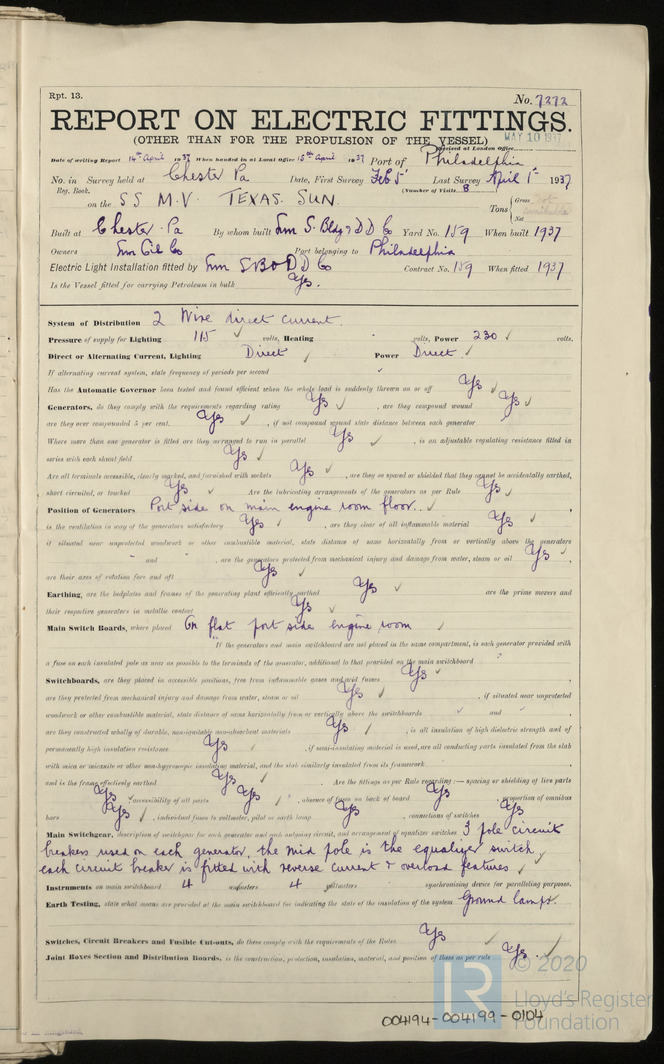 Rpt. 13.
No. 7272
REPORT ON ELECTRIC FITTINGS.
(OTHER THAN FOR THE PROPULSION OF THE VESSEL)
MAY 10 1937
Received at London Office
Date of writing Report 14th April 1937 When handed in at Local Office 15th April 1937 Port of Philadelphia
No. in Survey held at Chester Pa Date, First Survey Feb 5 Last Survey April 1st 1937
Reg. Book. (Number of Visits 8
on the SS M.V. TEXAS SUN. Tons { Gross Net
Built at Chester Pa By whom built Sun S. Bldg & D D Co Yard No. 159 When built 1937
Owners Sun Oil Co Port belonging to Philadelphia
Electric Light Installation fitted by Sun S B & D D Co Contract No. 159 When fitted 1937
Is the Vessel fitted for carrying Petroleum in bulk Yes.
System of Distribution 2 Wire direct current.
Pressure of supply for Lighting 115 ✓ volts, Heating volts, Power 230 ✓ volts.
Direct or Alternating Current, Lighting Direct ✓ Power Direct ✓
If alternating current system, state frequency of periods per second ✓
Has the Automatic Governor been tested and found efficient when the whole load is suddenly thrown on or off Yes ✓
Generators, do they comply with the requirements regarding rating Yes ✓, are they compound wound Yes ✓
are they over compounded 5 per cent. Yes ✓, if not compound wound state distance between each generator
Where more than one generator is fitted are they arranged to run in parallel Yes ✓, is an adjustable regulating resistance fitted in
series with each shunt field Yes ✓
Are all terminals accessible, clearly marked, and furnished with sockets Yes ✓, are they so spaced or shielded that they cannot be accidentally earthed,
short circuited, or touched Yes ✓ Are the lubricating arrangements of the generators as per Rule Yes ✓
Position of Generators Port side on main engine room floor. ✓
is the ventilation in way of the generators satisfactory Yes ✓, are they clear of all inflammable material Yes ✓
if situated near unprotected woodwork or other combustible material, state distance of same horizontally from or vertically above the generators
and , are the generators protected from mechanical injury and damage from water, steam or oil Yes ✓
are their axes of rotation fore and aft Yes ✓
Earthing, are the bedplates and frames of the generating plant efficiently earthed Yes ✓ are the prime movers and
their respective generators in metallic contact Yes ✓
Main Switch Boards, where placed On flat port side engine room ✓
If the generators and main switchboard are not placed in the same compartment, is each generator provided with
a fuse on each insulated pole as near as possible to the terminals of the generator, additional to that provided on the main switchboard
Switchboards, are they placed in accessible positions, free from inflammable gases and acid fumes Yes ✓
are they protected from mechanical injury and damage from water, steam or oil Yes ✓, if situated near unprotected
woodwork or other combustible material, state distance of same horizontally from or vertically above the switchboards ✓ and ✓
are they constructed wholly of durable, non-ignitable non-absorbent materials Yes ✓, is all insulation of high dielectric strength and of
permanently high insulation resistance Yes ✓, if semi-insulating material is used, are all conducting parts insulated from the slab
with mica or micanite or other non-hygroscopic insulating material, and the slab similarly insulated from its framework
and is the frame effectively earthed Yes ✓ Are the fittings as per Rule regarding:— spacing or shielding of live parts
Yes ✓, accessibility of all parts Yes ✓, absence of fuses on back of board Yes proportion of omnibus
bars Yes ✓, individual fuses to voltmeter, pilot or earth lamp Yes ✓, connections of switches Yes
Main Switchgear, description of switchgear for each generator and each outgoing circuit, and arrangement of equalizer switches. 3 pole circuit
breakers used on each generator, the mid pole is the equalizer switch
each circuit breaker is fitted with reverse current & overload features ✓
Instruments on main switchboard 4 ammeters 4 voltmeters synchronising device for paralleling purposes.
Earth Testing, state what means are provided at the main switchboard for indicating the state of the insulation of the system Ground lamps.
Switches, Circuit Breakers and Fusible Cut-outs, do these comply with the requirements of the Rules Yes ✓
Joint Boxes Section and Distribution Boards, is the construction, protection, insulation, material, and position of these as per rule Yes ✓
LR © 2020
Lloyd's Register
Foundation
004194-004199-0104